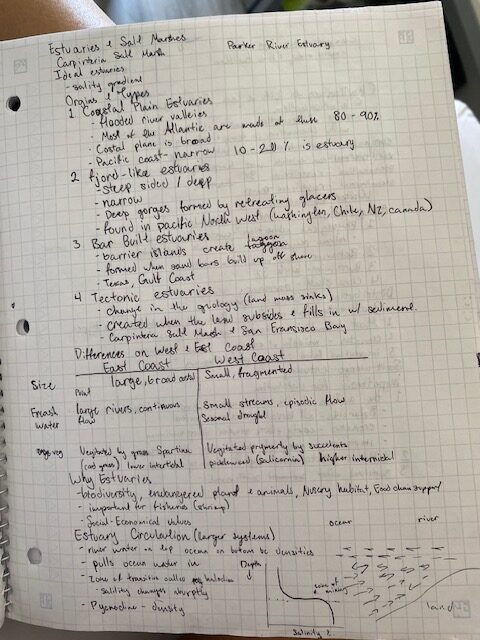 Estuaries & Salt Marshes
Parker River Estuary
Carpinteria Salt Marsh
Ideal estuaries
- sality gradient
Orgins & Types
1 Coastal Plain Estuaries
- flooded river valleies
- Most of the Atlantic are made of these 80-90%
- Costal plane is broad
- Pacific coast - narrow 10-20% is estuary
2 fjord-like estuaries
- steep sided / deep
- narrow
- Deep gorges formed by retreating glacers
- found in pacific North West (Washington, Chile, NZ, canada)
3 Bar Built estuaries
- barrier islands create lagoon
- formed when sand bars build up off shore
- Texas, Gulf Coast
4 Tectonic estuaries
- change in the geology (land mass sinks)
- created when the land subsides & fills in w/ sediment.
- Carpintera Salt Marsh & San Fransisco Bay
Differences on West & East Coast
East Coast West Coast
Size large, broad coastal Small, fragmented
Plain
Freash water large rivers, continuous flow Small streams, episodic flow
Seasonal drought
veg Vegitated by grass Spartina Vegitated prymerly by succulents
(cord grass) lower intertidal pickleweed (salicornia) higher internidal
Why Estuaries
- biodiversity, endangered plant & animals, Nusery habitat, Food chain support
- important for fisheries (shrimp)
- Social-Economical values
Estuary Circulation (larger systems)
ocean river
- river water on top ocean on bottom bc densities
- pulls ocean water in
Depth
- Zone of transition called halocline
- salility changes abruptly
zone of mixing
- Pycnocline - density
land
Salinity